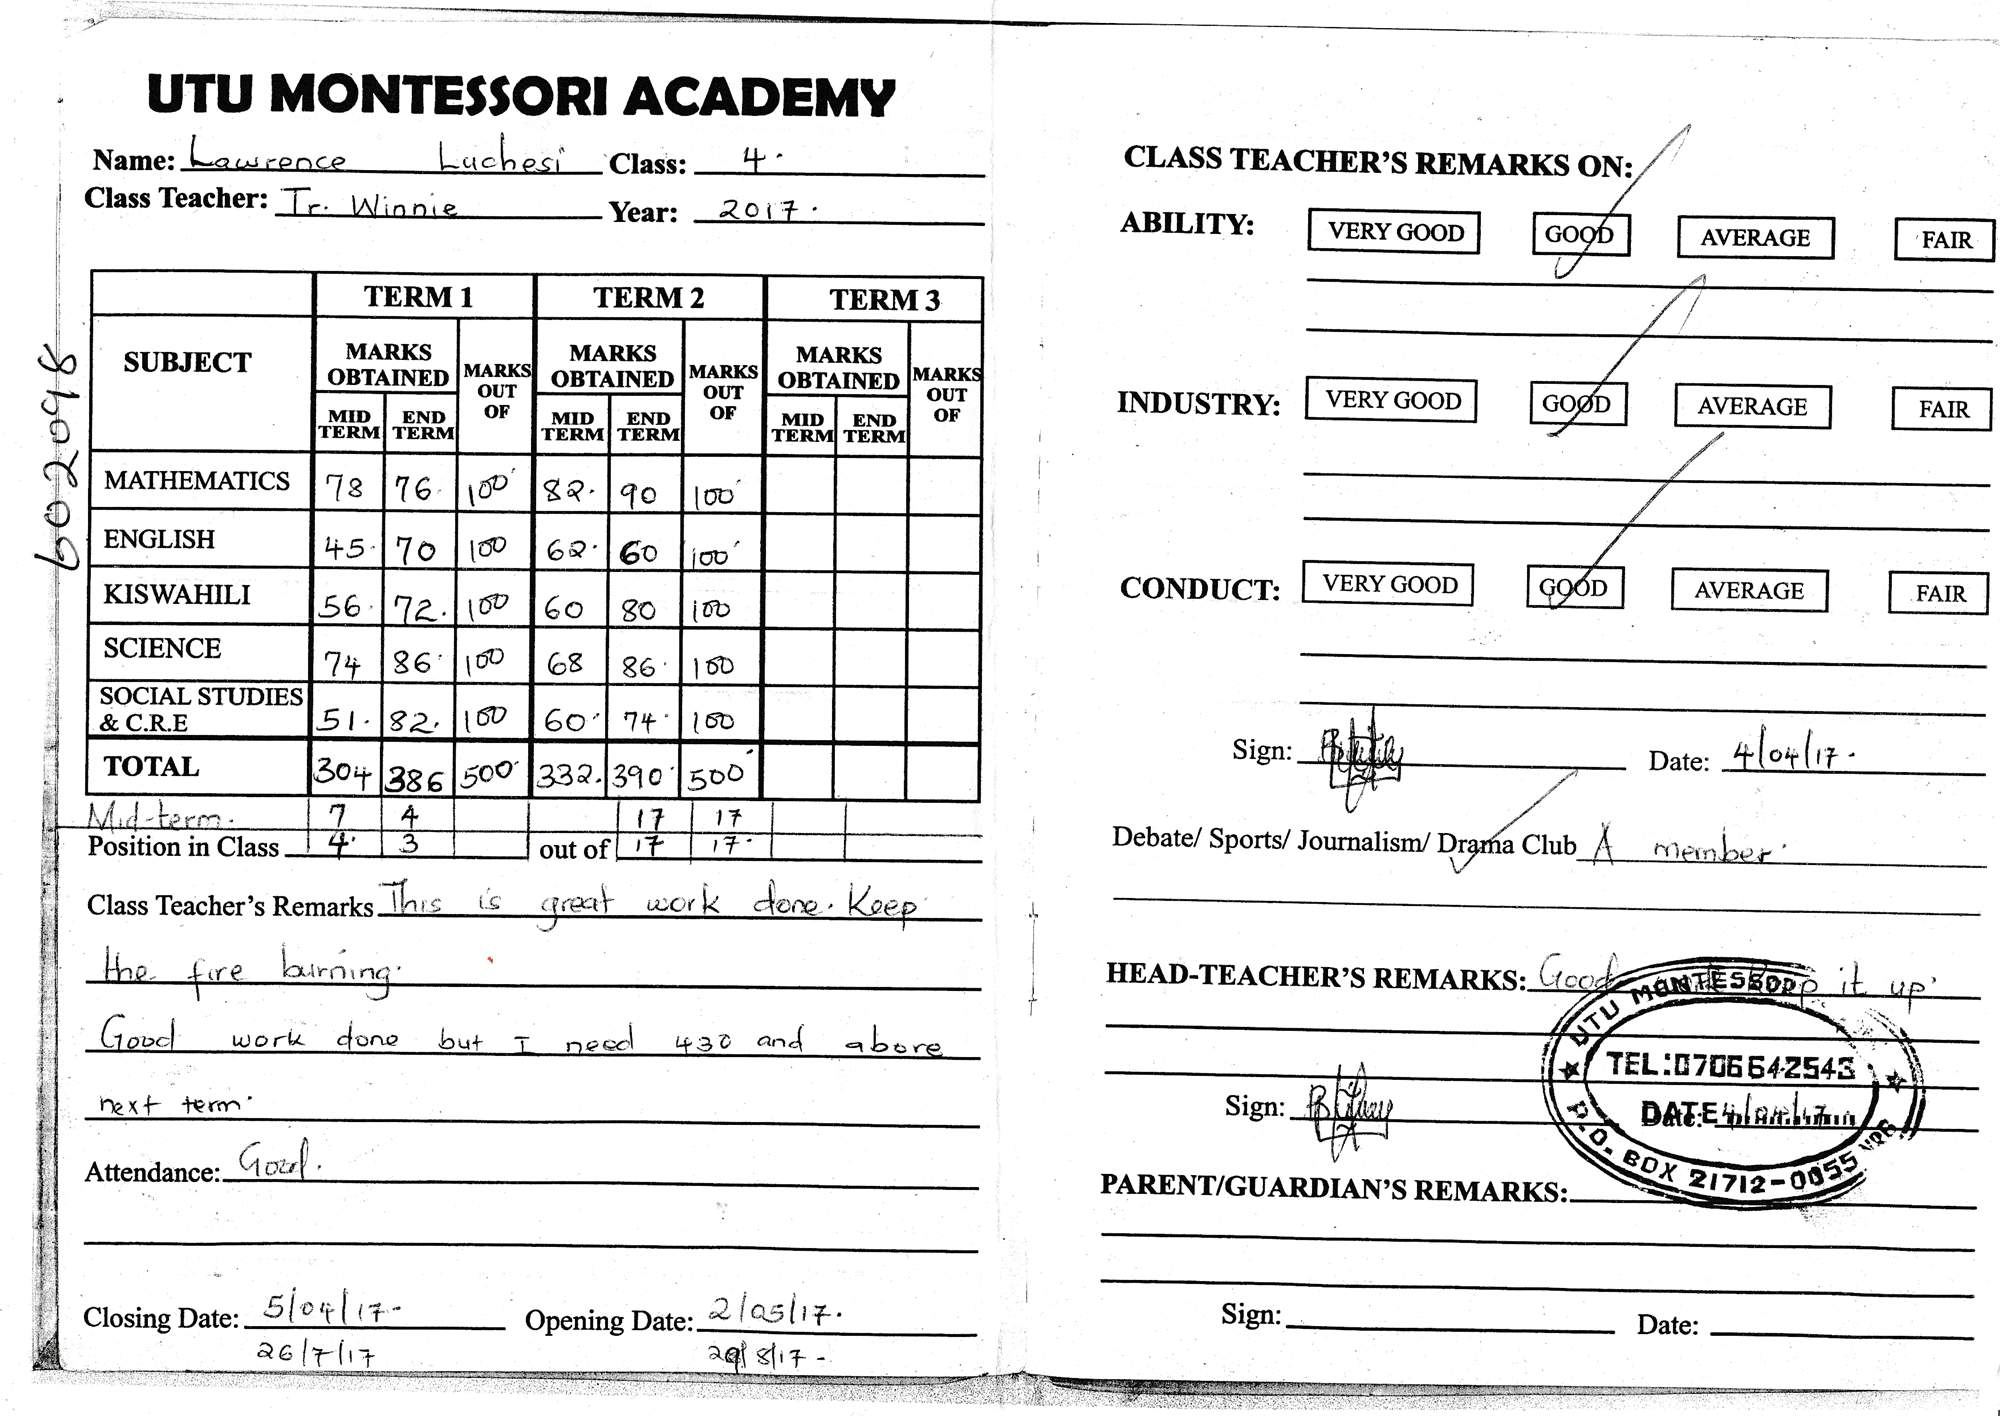 UTU MONTESSORI ACADEMY
Name: Lawrence Luchesi Class: 4.
Class Teacher: Tr. Winnie Year: 2017.
602098
TERM 1 TERM 2 TERM 3
SUBJECT MARKS OBTAINED MARKS OUT OF MARKS OBTAINED MARKS OUT OF MARKS OBTAINED MARKS OUT OF
MID TERM END TERM MID TERM END TERM MID TERM END TERM
MATHEMATICS 78 76 100 82 90 100
ENGLISH 45 70 100 62 60 100
KISWAHILI 56 72 100 60 80 100
SCIENCE 74 86 100 68 86 100
SOCIAL STUDIES & C.R.E 51 82 100 60 74 100
TOTAL 304 386 500 332 390 500
Mid-term. 7 4 17 17
Position in Class 4 3 out of 17 17
Class Teacher's Remarks This is great work done. Keep
the fire burning.
Good work done but I need 430 and above
next term.
Attendance: Good.
Closing Date: 5/04/17 Opening Date: 2/05/17.
26/7/17 8/17
CLASS TEACHER'S REMARKS ON:
ABILITY: VERY GOOD GOOD AVERAGE FAIR
INDUSTRY: VERY GOOD GOOD AVERAGE FAIR
CONDUCT: VERY GOOD GOOD AVERAGE FAIR
Sign: Date: 4/04/17.
Debate/ Sports/ Journalism/ Drama Club A member
HEAD-TEACHER'S REMARKS: Good it up
UTU MONTESSORI
TEL:0706642543
Sign: DATE
P.O. BOX 21712-0055
PARENT/GUARDIAN'S REMARKS:
Sign: Date: